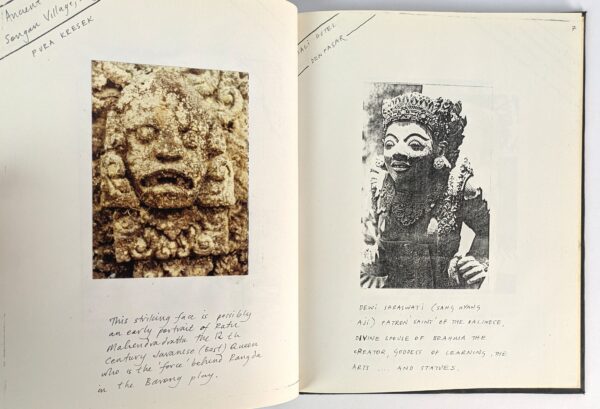 'Ancient
Songan Village,
PURA KRESEK
This striking face is possibly
an early portrait of Ratu
Mahendradatta the 12 th
century Javanese (East) Queen
who is the 'force' behind Rangda
in the Barong play.
7
BALI HOTEL
DENPASAR
DEWI SARASWATI (SANG HYANG
AJI) PATRON 'SAINT' OF THE BALINESE,
DIVINE SPOUSE OF BRAHMA THE
CREATOR, GODDESS OF LEARNING, THE
ARTS ... AND STATUES.